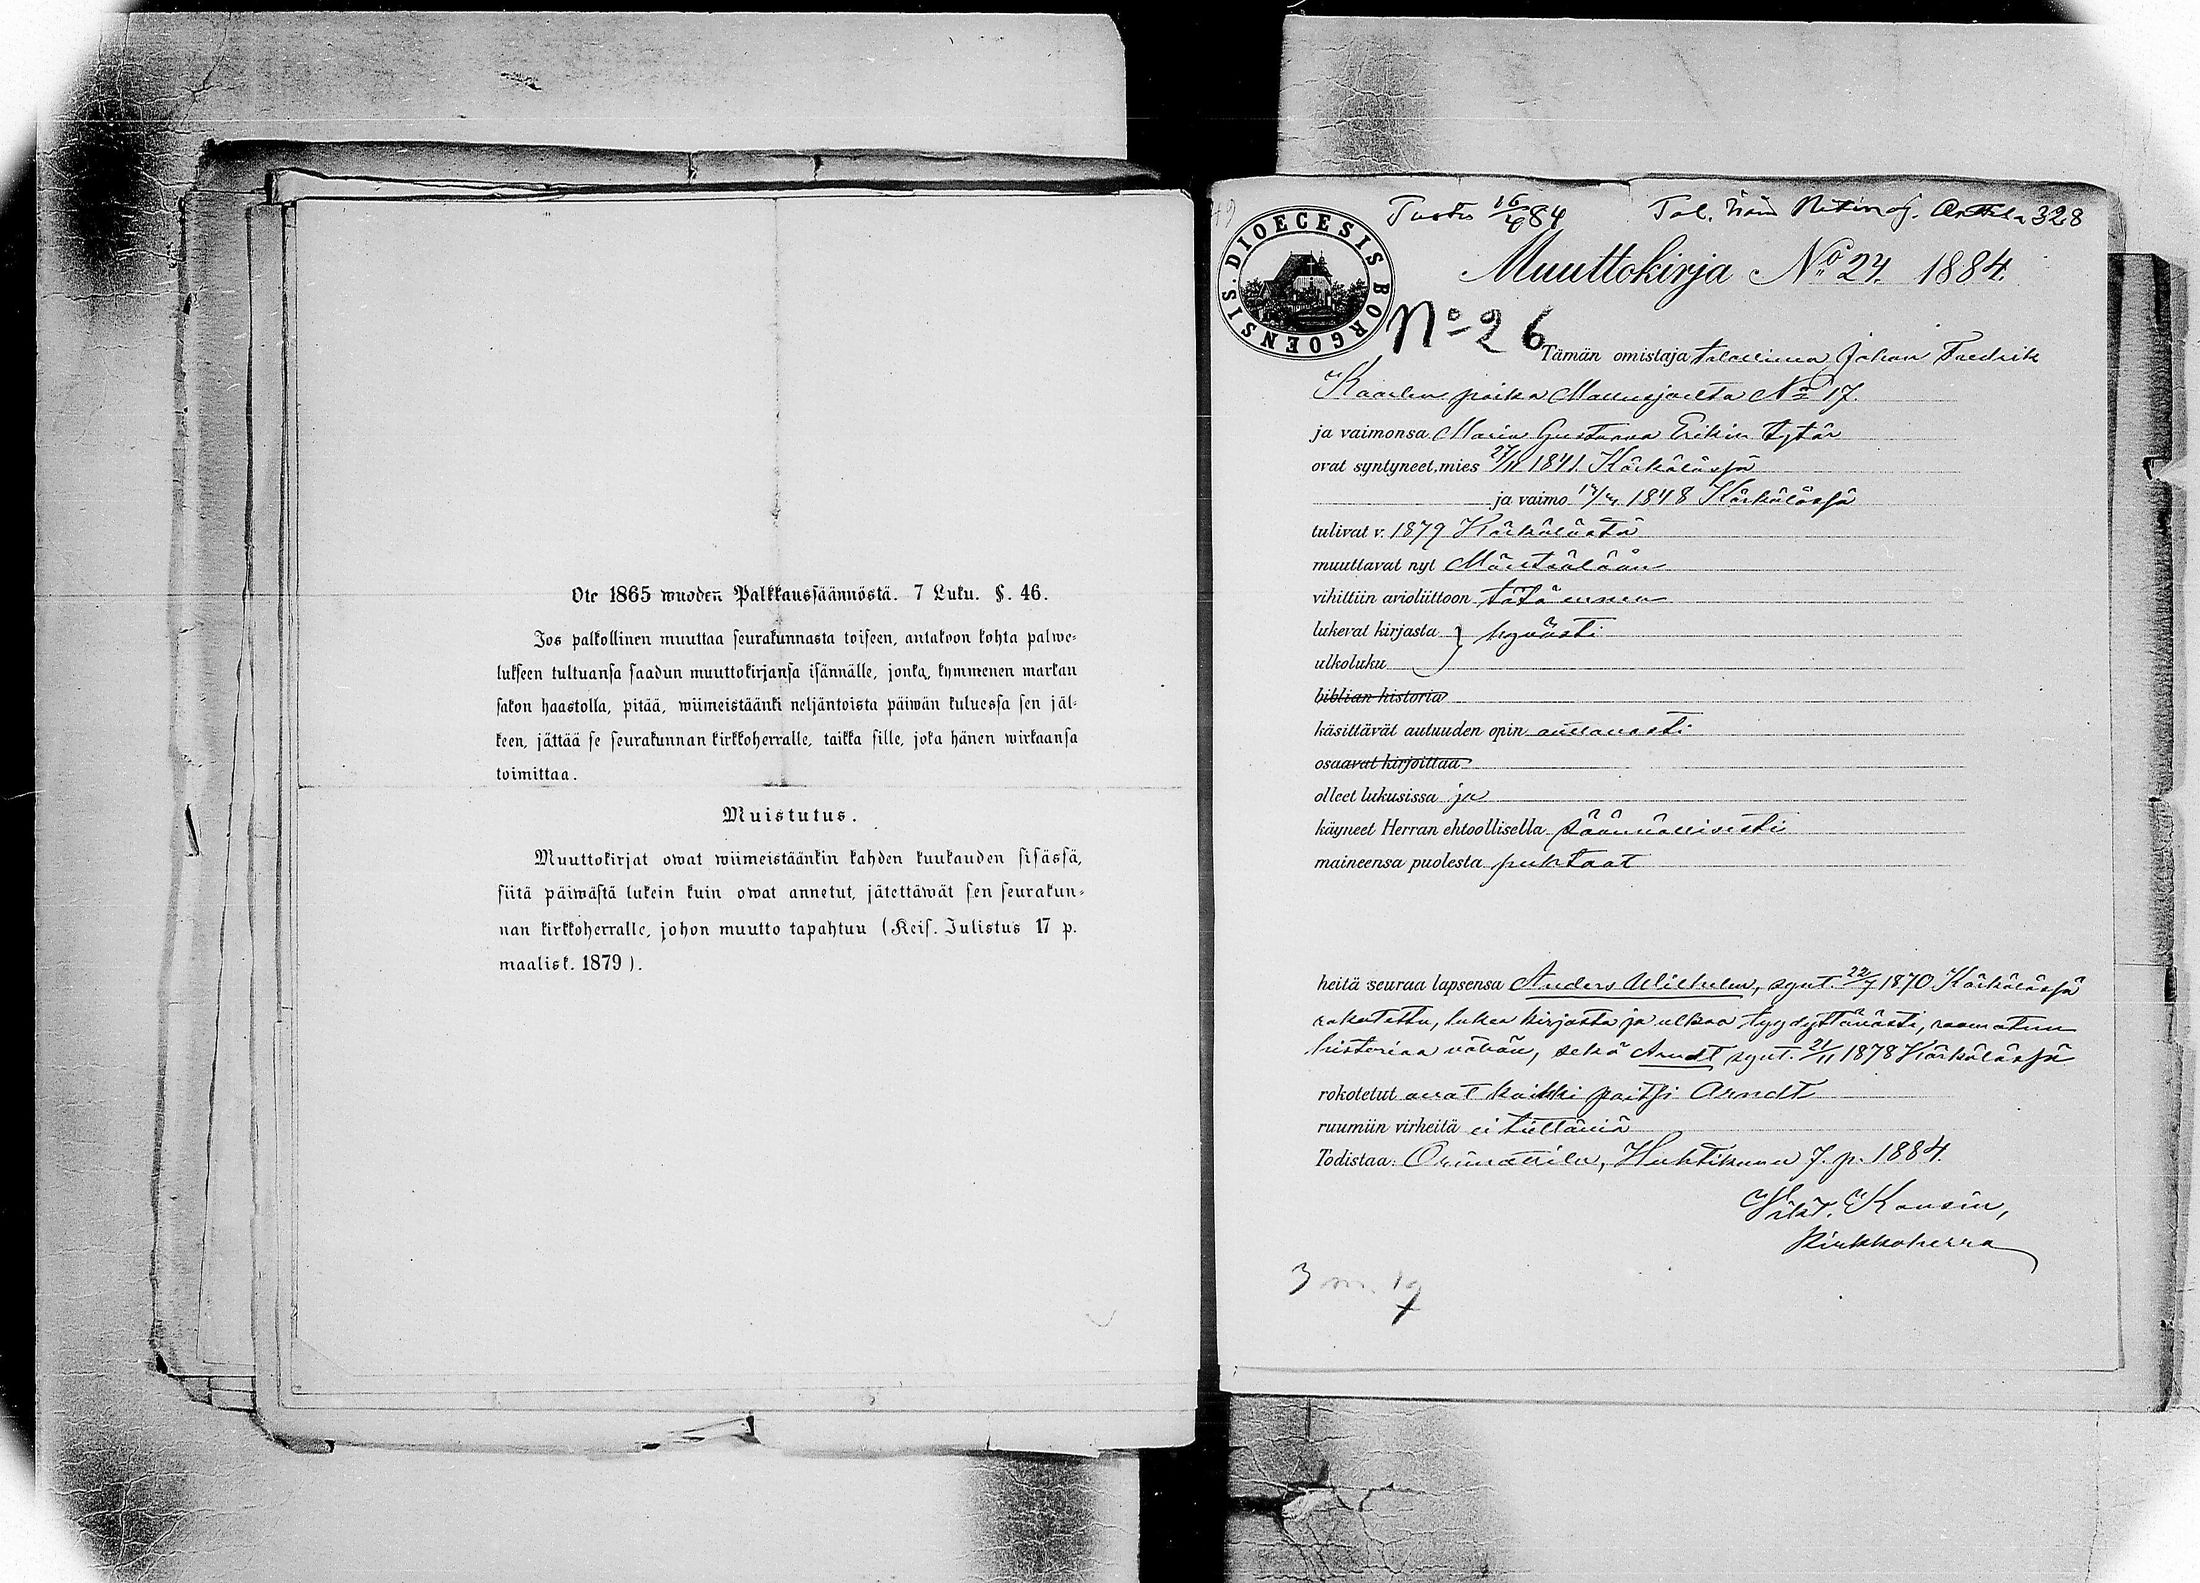 Ote 1865 wuoden Palkkaussäännöstä. 7 Luku. §. 46.
Jos palkollinen muuttaa seurakunnasta toiseen, antakoon kohta palwe-
lukseen tultuansa saadun muuttokirjansa isännälle, jonka, kymmenen markan
sakon haastolla, pitää, wiimeistäänki neljäntoista päiwän kuluessa sen jäl-
keen, jättää se seurakunnan kirkkoherralle, taikka sille, joka hänen wirkaansa
toimittaa.
Muistutus.
Muuttokirjat owat wiimeistäänkin kahden kuukauden sisässä,
siitä päiwästä lukein kuin owat annetut, jätettäwät sen seurakun-
nan kirkkoherralle, johon muutto tapahtuu (Keis. Julistus 17 p.
maalisk. 1879).
16/4 84 Tal. 328
DIOECESIS BORGOENSIS.
Muuttokirja No 24. 1884.
No 26
Tämän omistaja talollinen Johan Fredrik
Kaarlen poika Mallusjoelta No 17.
ja vaimonsa Maria Gustaava Erikin tytär
ovat syntyneet, mies 27/11 1841 Kärkölässä
ja vaimo 1848 Kärkölässä
tulivat v. 1879 Kärkölästä
muuttavat nyt Mäntsälään
vihittiin avioliittoon tätä ennen
lukevat kirjasta } hyvästi
ulkoluku
biblian historia
käsittävät autuuden opin auttavasti
osaavat kirjoittaa
olleet lukusissa ja
käyneet Herran ehtoollisella säännöllisesti
maineensa puolesta puhtaat
heitä seuraa lapsensa Anders Wilhelm, synt. 22/7 1870 Kärkölässä
rokotettu, lukee kirjasta ja ulkoa tyydyttävästi, raamatun
historiaa vähän, sekä Arndt synt. 21/11 1878 Kärkölässä
rokotetut ovat kaikki paitsi Arndt
ruumiin virheitä ei tiettäviä
Todistaa: Orimattila, Huhtikuun 7. p. 1884.
Kirkkoherra